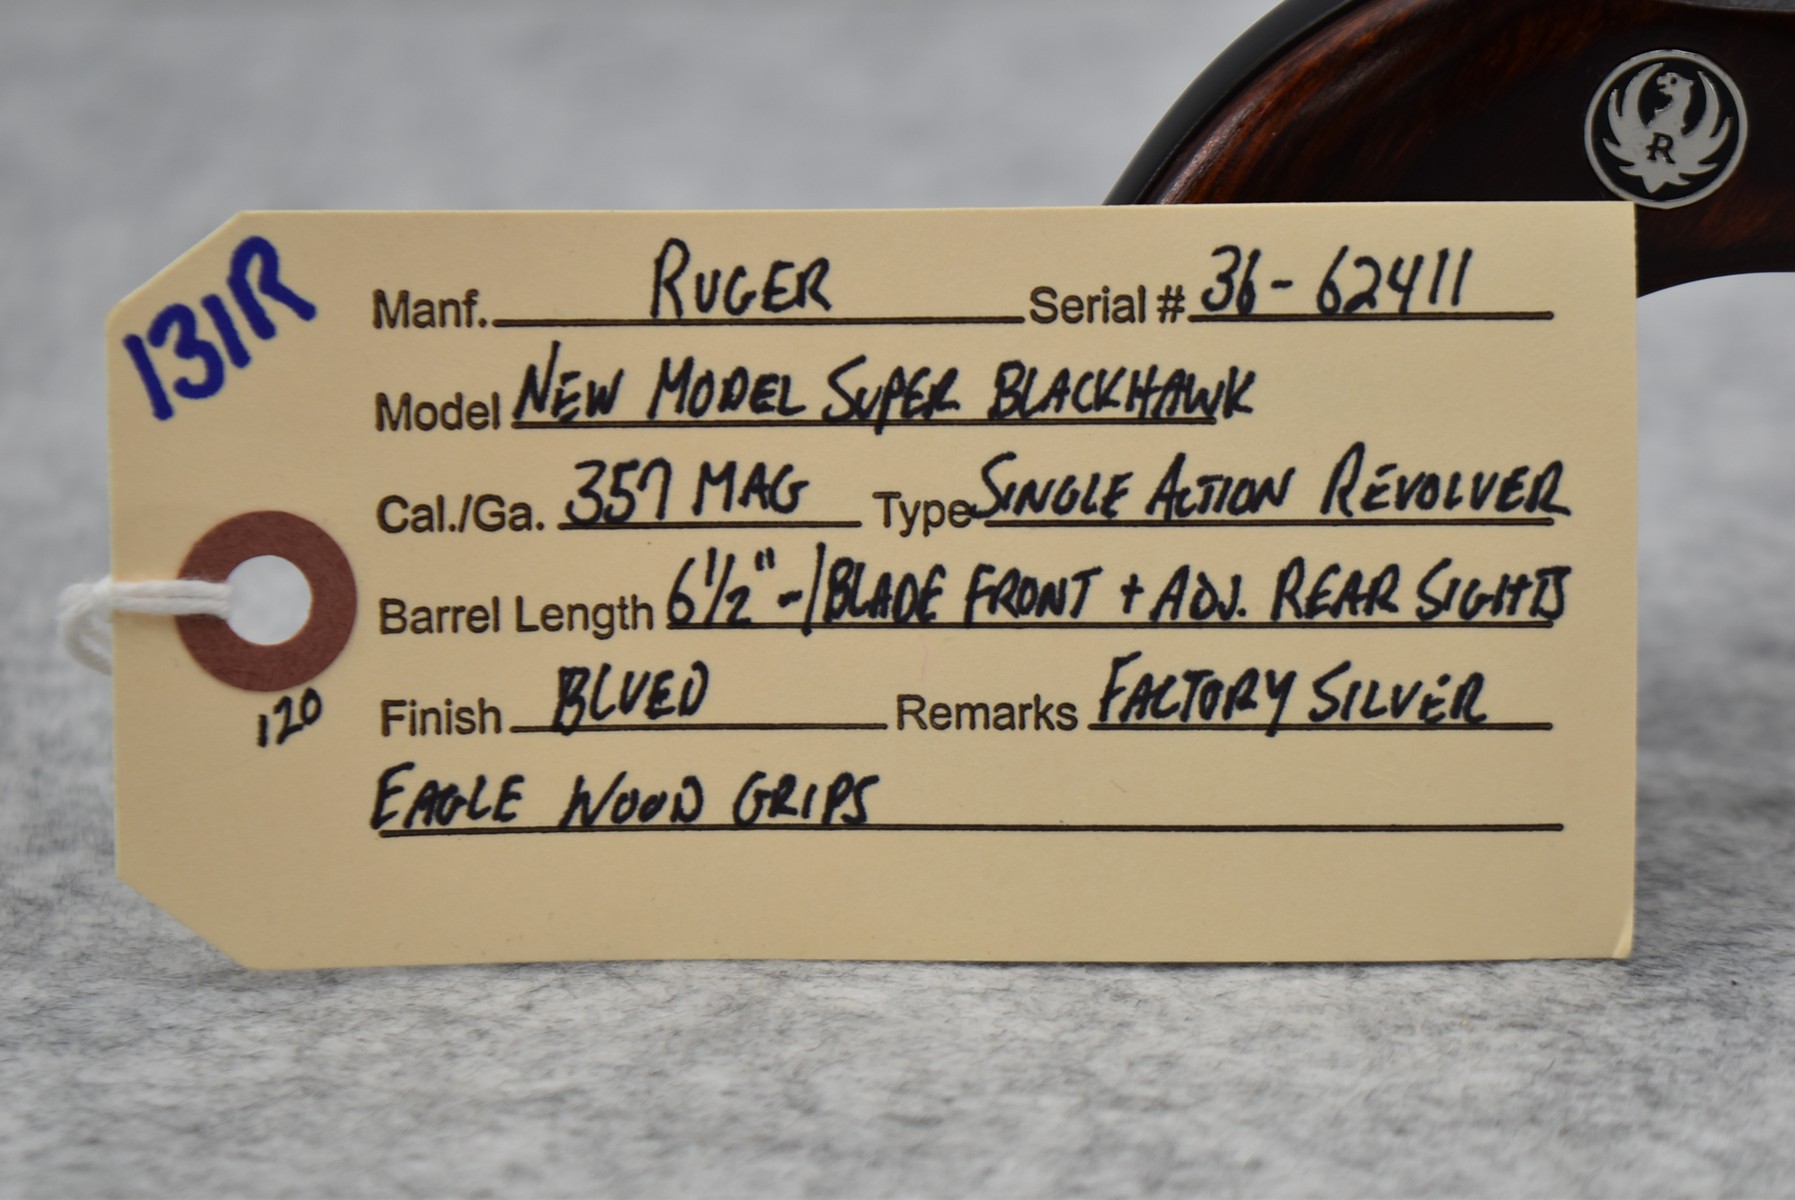 131R
Manf. RUGER Serial # 36-62411
Model NEW MODEL SUPER BLACKHAWK
Cal./Ga. 357 MAG Type SINGLE ACTION REVOLVER
Barrel Length 6 1/2" -/BLADE FRONT + ADJ. REAR SIGHTS
Finish BLUED Remarks FACTORY SILVER
EAGLE WOOD GRIPS
120
R